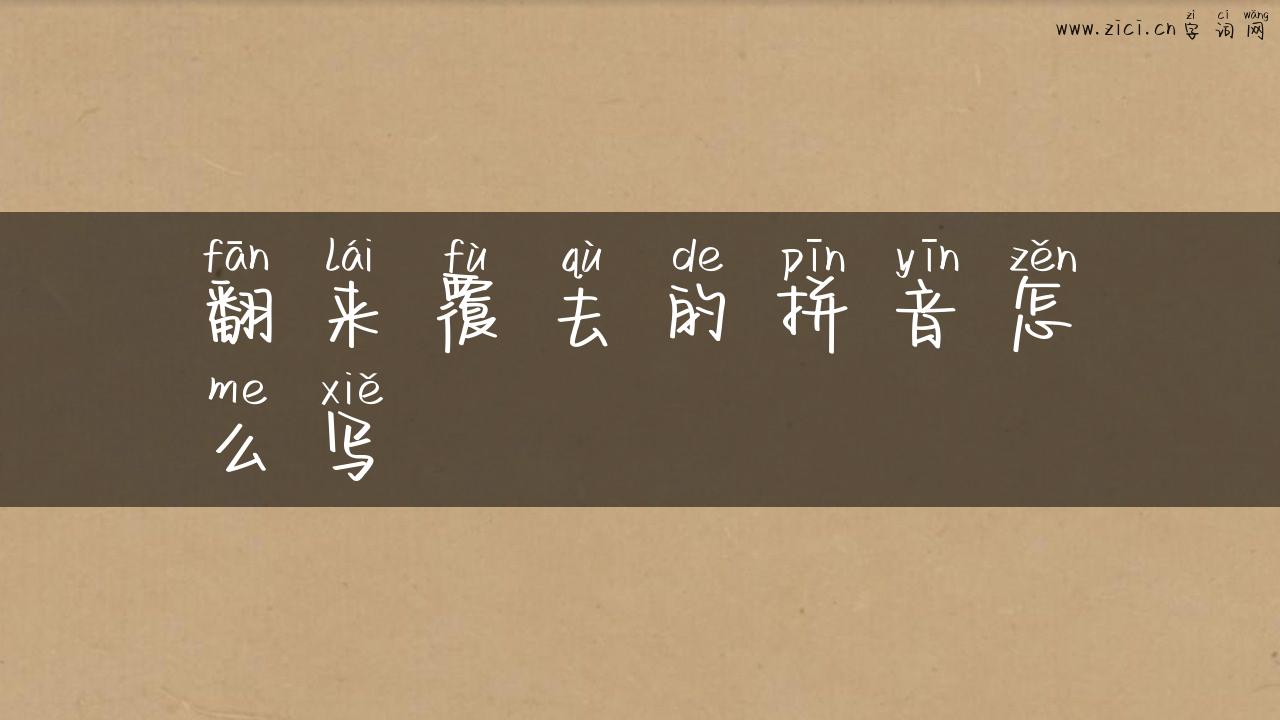 zì cí wǎng
www.zici.cn 字词网
fān lái fù qù de pīn yīn zěn
翻来覆去的拼音怎
me xiě
么写